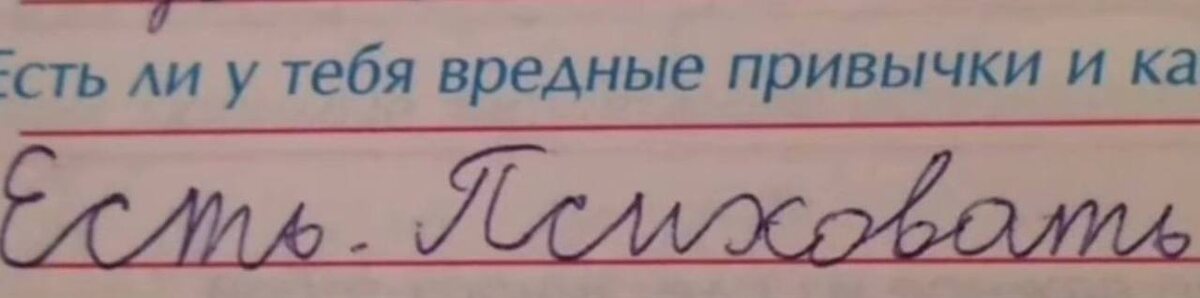 Есть ли у тебя вредные привычки и ка
Есть. Психовать